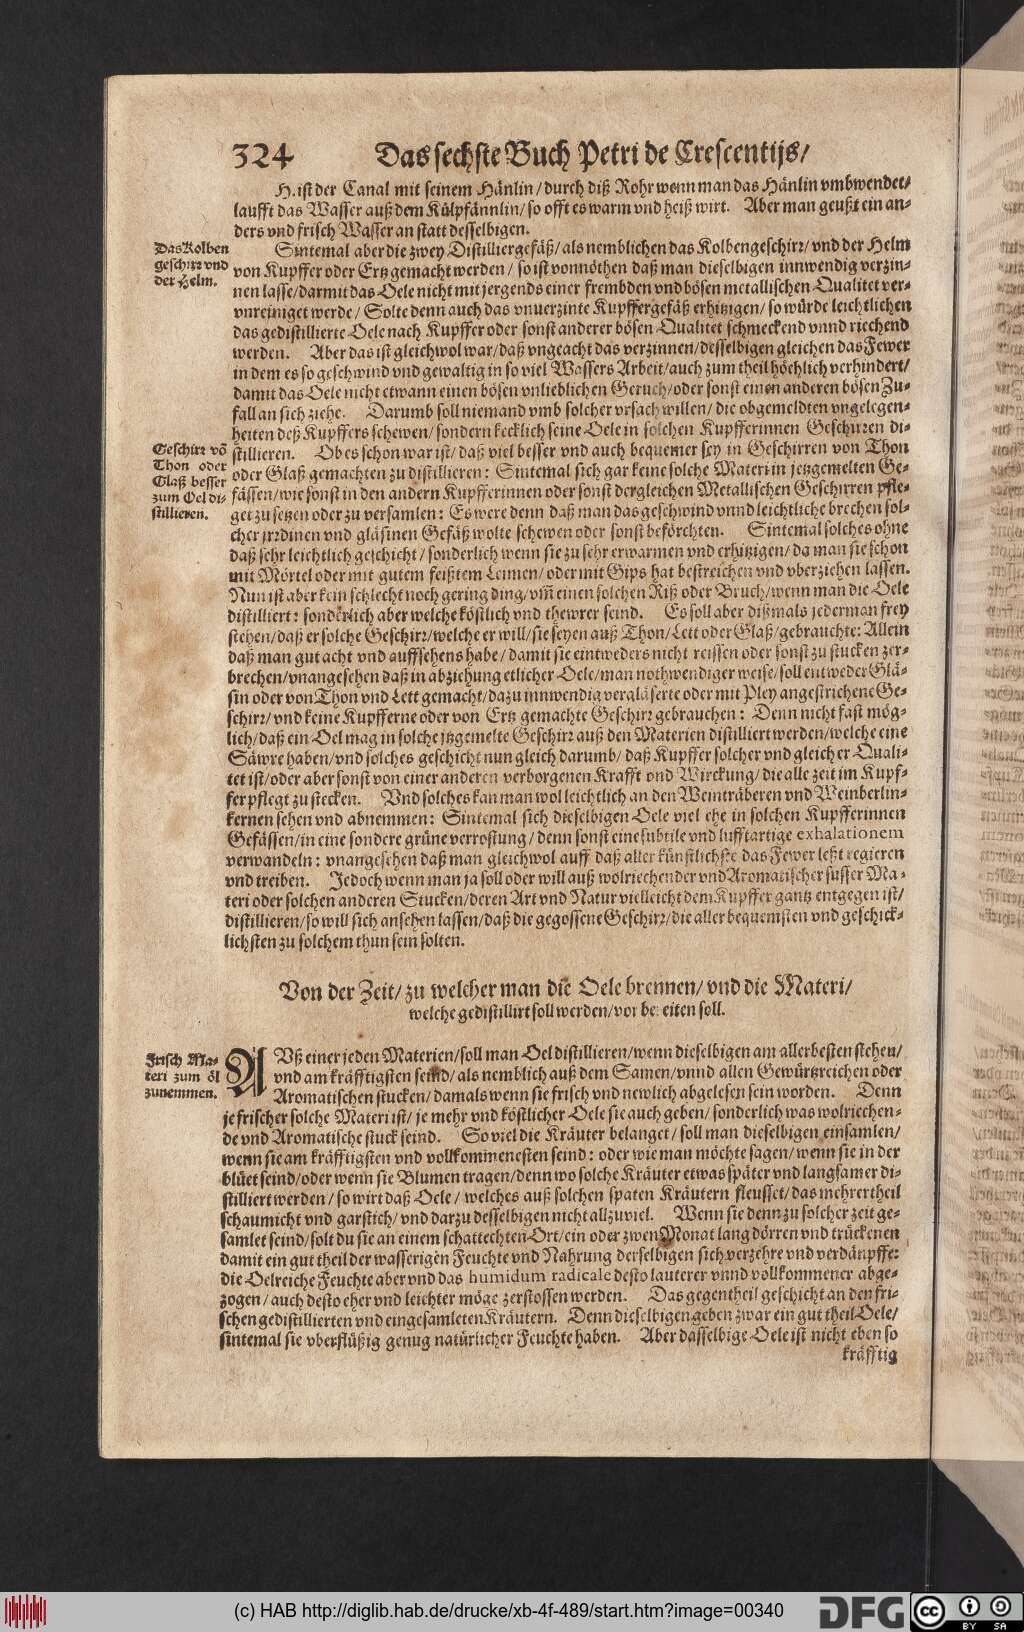 324 Das sechste Buch Petri de Crescentijs/
H. ist der Canal mit seinem Hänlin/ durch diß Rohr wenn man das Hänlin vmbwendet/
laufft das Wasser auß dem Külpfännlin/ so offt es warm vnd heiß wirt. Aber man geußt ein an-
ders vnd frisch Wasser an statt desselbigen.
Das Kolben
geschirr vnd
der Helm.
Sintemal aber die zwey Distilliergefäß/ als nemblichen das Kolbengeschirr/ vnd der Helm
von Kupffer oder Ertz gemacht werden/ so ist vonnöthen daß man dieselbigen innwendig verzin-
nen lasse/ darmit das Oele nicht mit jergends einer frembden vnd bösen metallischen Qualitet ver-
vnreiniget werde/ Solte denn auch das vnuerzinte Kupffergefäß erhitzigen/ so würde leichtlichen
das gedistillierte Oele nach Kupffer oder sonst anderer bösen Qualitet schmeckend vnnd riechend
werden. Aber das ist gleichwol war/ daß vngeacht das verzinnen/ desselbigen gleichen das Fewer
in dem es so geschwind vnd gewaltig in so viel Wassers Arbeit/ auch zum theil höchlich verhindert/
damit das Oele nicht etwann einen bösen vnlieblichen Geruch/ oder sonst einen anderen bösen Zu-
fall an sich ziehe. Darumb soll niemand vmb solcher vrsach willen/ die obgemeldten vngelegen-
heiten deß Kupffers schewen/ sondern kecklich seine Oele in solchen Kupfferinnen Geschirren di-
Geschirr võ
Thon oder
Glaß besser
zum Oel di-
stillieren.
stillieren. Ob es schon war ist/ daß viel besser vnd auch bequemer sey in Geschirren von Thon
oder Glaß gemachten zu distillieren: Sintemal sich gar keine solche Materi in jetzgemelten Ge-
fässen/ wie sonst in den andern Kupfferinnen oder sonst dergleichen Metallischen Geschirren pfle-
get zu setzen oder zu versamlen: Es were denn daß man das geschwind vnnd leichtliche brechen sol-
cher jrrdinen vnd gläsinen Gefäß wolte schewen oder sonst beförchten. Sintemal solches ohne
daß sehr leichtlich geschicht/ sonderlich wenn sie zu sehr erwarmen vnd erhitzigen/ da man sie schon
mit Mörtel oder mit gutem feißtem Leimen/ oder mit Gips hat bestreichen vnd vberziehen lassen.
Nun ist aber kein schlecht noch gering ding/ vm̃ einen solchen Riß oder Bruch/ wenn man die Oele
distilliert: sonderlich aber welche köstlich vnd thewrer seind. Es soll aber dißmals jederman frey
stehen/ daß er solche Geschirr/ welche er will/ sie seyen auß Thon/ Lett oder Glaß/ gebrauchte: Allein
daß man gut acht vnd auffsehens habe/ damit sie eintweders nicht reissen oder sonst zu stucken zer-
brechen/ vnangesehen daß in abziehung etlicher Oele/ man nothwendiger weise/ soll entweder Glä-
sin oder von Thon vnd Lett gemacht/ dazu innwendig vergläserte oder mit Pley angestrichene Ge-
schirr/ vnd keine Kupfferne oder von Ertz gemachte Geschirr gebrauchen: Denn nicht fast mög-
lich/ daß ein Oel mag in solche jtzgemelte Geschirr auß den Materien distilliert werden/ welche eine
Säwre haben/ vnd solches geschicht nun gleich darumb/ daß Kupffer solcher vnd gleicher Quali-
tet ist/ oder aber sonst von einer anderen verborgenen Krafft vnd Wirckung/ die alle zeit im Kupf-
fer pflegt zu stecken. Vnd solches kan man wol leichtlich an den Weinträberen vnd Weinberlin-
kernen sehen vnd abnemmen: Sintemal sich dieselbigen Oele viel ehe in solchen Kupfferinnen
Gefässen/ in eine sondere grüne verrostung/ denn sonst eine subtile vnd lufftartige exhalationem
verwandeln: vnangesehen daß man gleichwol auff daß aller künstlichste das Fewer leßt regieren
vnd treiben. Jedoch wenn man ja soll oder will auß wolriechender vnd Aromatischer susser Ma-
teri oder solchen anderen Stucken/ deren Art vnd Natur vielleicht dem Kupffer gantz entgegen ist/
distillieren/ so will sich ansehen lassen/ daß die gegossene Geschirr/ die aller bequemsten vnd geschick-
lichsten zu solchem thun sein solten.
Von der Zeit/ zu welcher man die Oele brennen/ vnd die Materi/
welche gedistillirt soll werden/ vorbereiten soll.
Frisch Ma-
teri zum öl
zunemmen.
AVß einer jeden Materien/ soll man Oel distillieren/ wenn dieselbigen am allerbesten stehen/
vnd am kräfftigsten seind/ als nemblich auß dem Samen/ vnnd allen Gewürtzreichen oder
Aromatischen stucken/ damals wenn sie frisch vnd newlich abgelesen sein worden. Denn
je frischer solche Materi ist/ je mehr vnd köstlicher Oele sie auch geben/ sonderlich was wolriechen-
de vnd Aromatische stuck seind. So viel die Kräuter belanget/ soll man dieselbigen einsamlen/
wenn sie am kräfftigsten vnd vollkommenesten seind: oder wie man möchte sagen/ wenn sie in der
blüet seind/ oder wenn sie Blumen tragen/ denn wo solche Kräuter etwas später vnd langsamer di-
stilliert werden/ so wirt daß Oele/ welches auß solchen spaten Kräutern fleusset/ das mehrertheil
schaumicht vnd garstich/ vnd darzu desselbigen nicht allzuviel. Wenn sie denn zu solcher zeit ge-
samlet seind/ solt du sie an einem schattechten Ort/ ein oder zwen Monat lang dörren vnd trückenen
damit ein gut theil der wasserigen Feuchte vnd Nahrung derselbigen sich verzehre vnd verdänpffe:
die Oelreiche Feuchte aber vnd das humidum radicale desto lauterer vnnd vollkommener abge-
zogen/ auch desto eher vnd leichter möge zerstossen werden. Das gegentheil geschicht an den fri-
schen gedistillierten vnd eingesamleten Kräutern. Denn dieselbigen geben zwar ein gut theil Oele/
sintemal sie vberflüßig genug natürlicher Feuchte haben. Aber dasselbige Oele ist nicht eben so
kräfftig
(c) HAB http://diglib.hab.de/drucke/xb-4f-489/start.htm?image=00340
DFG
cc
BY SA